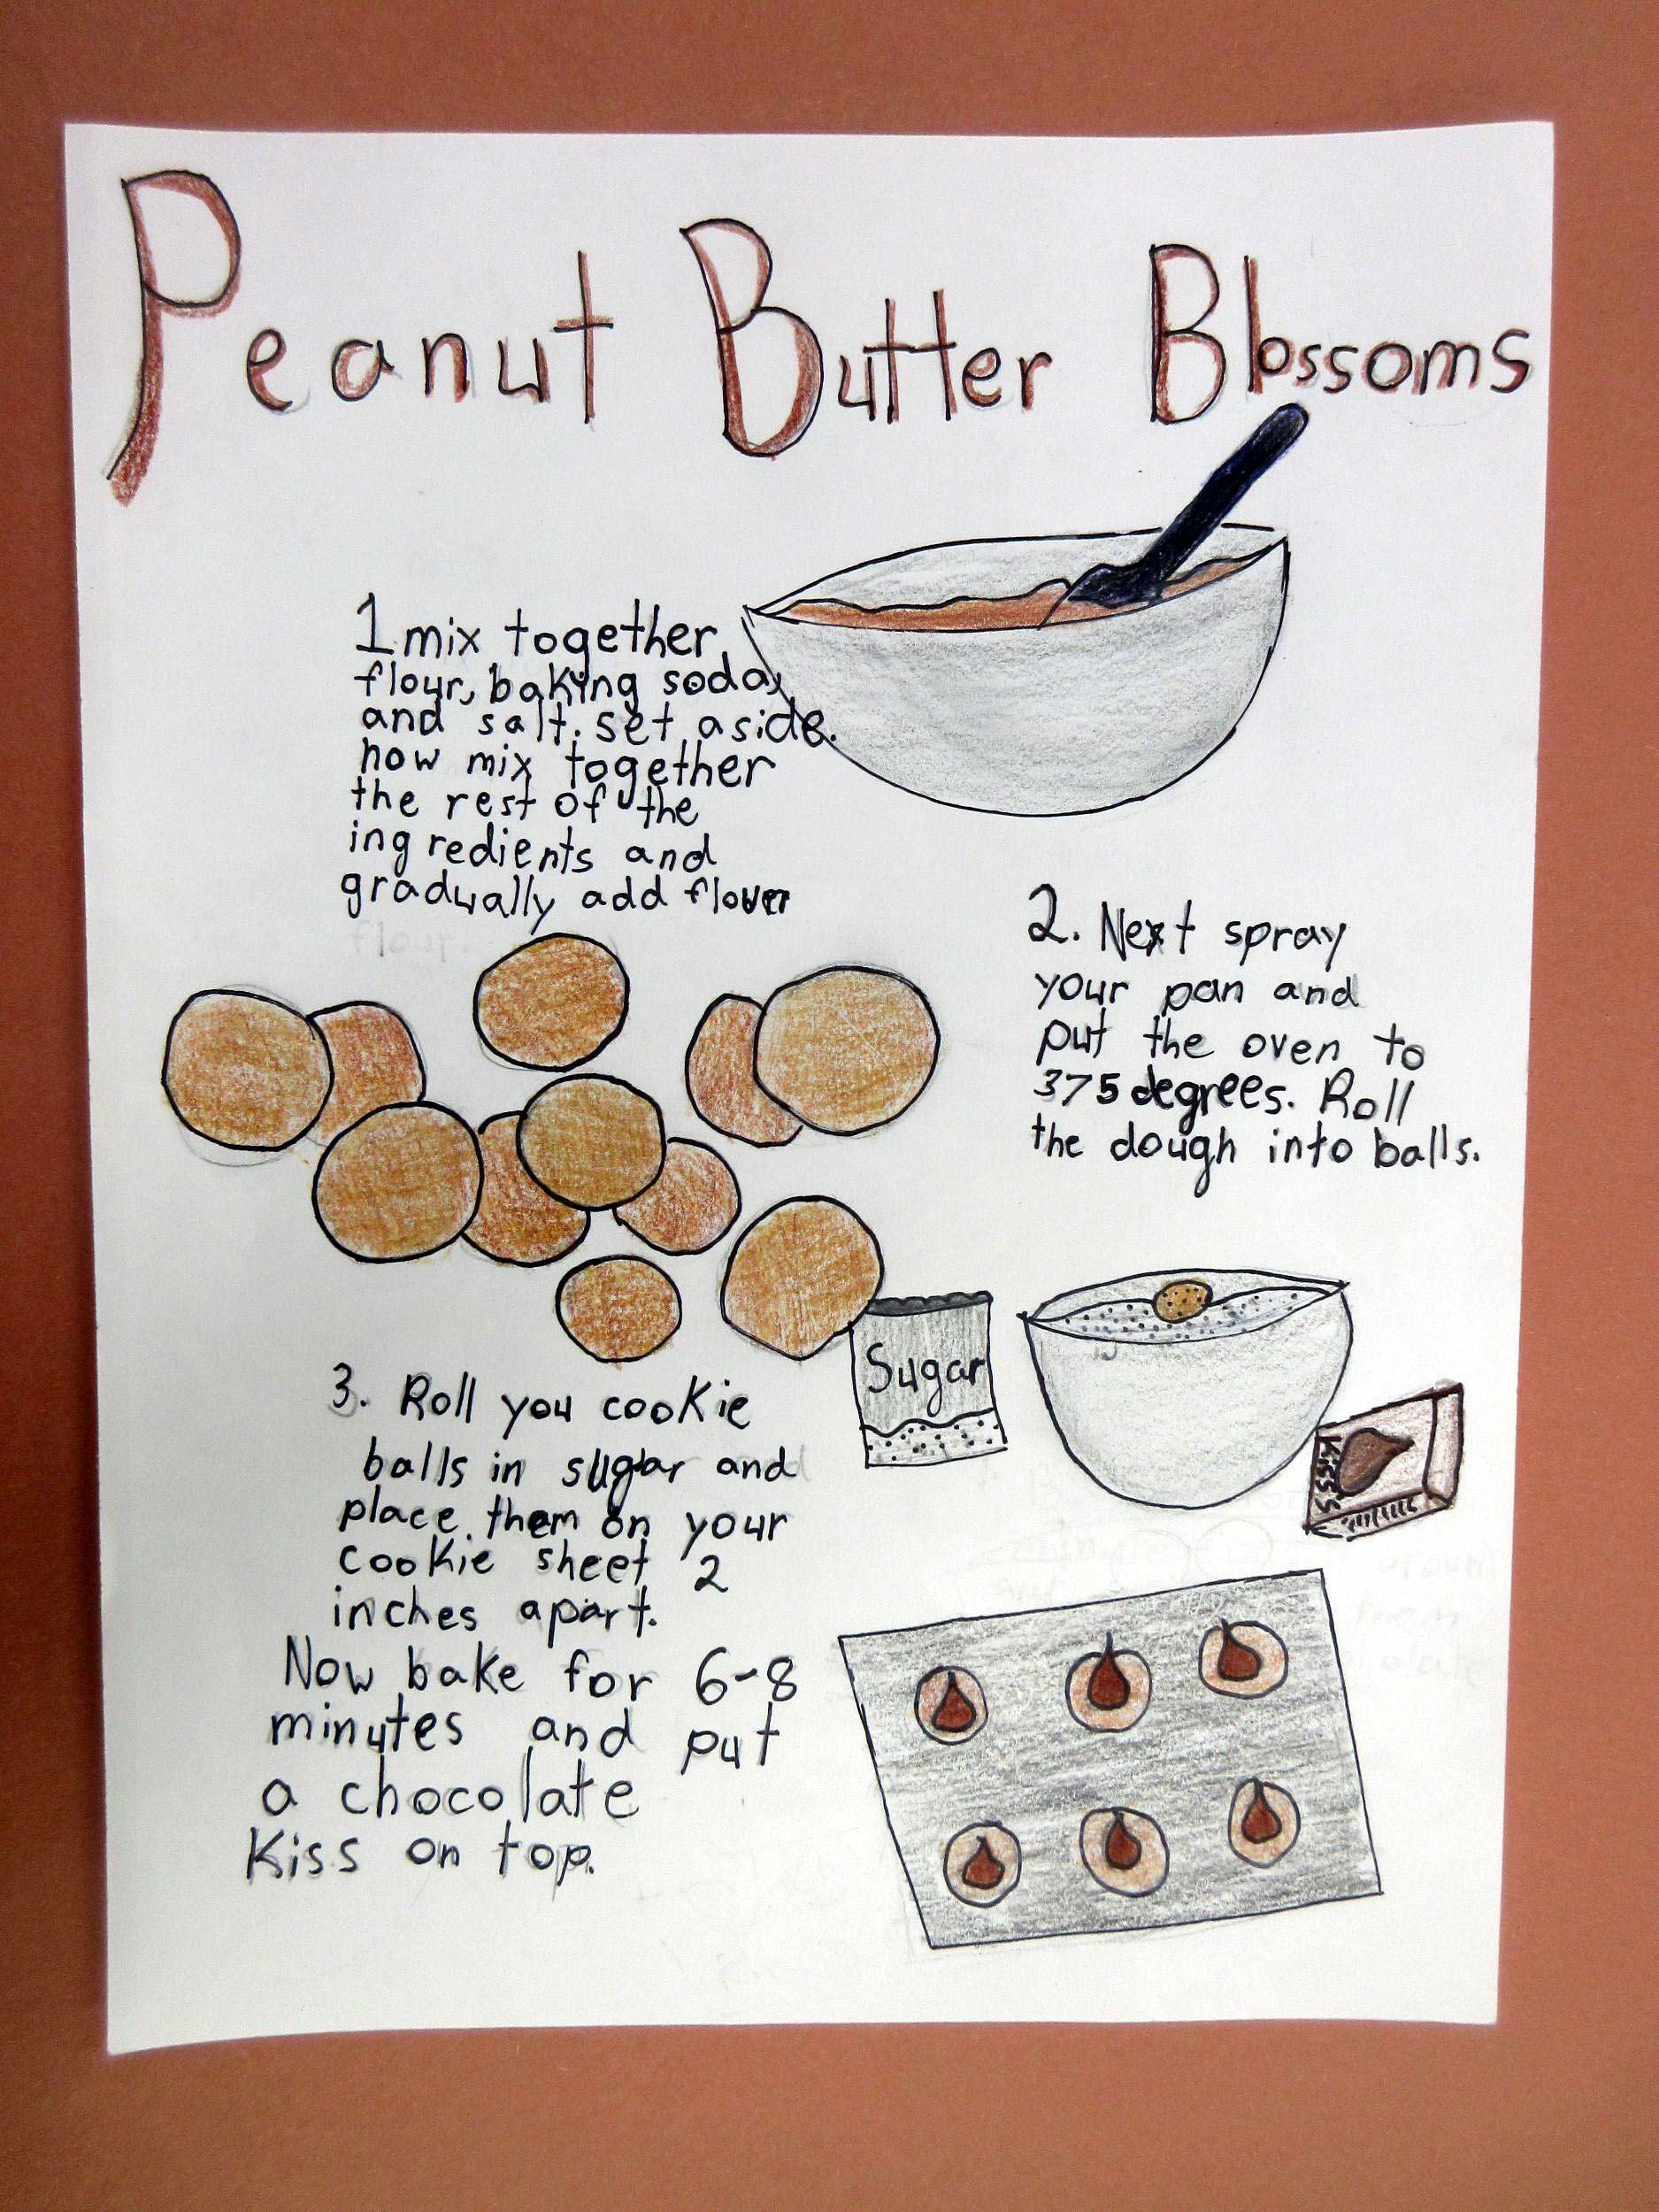 Peanut Butter Blossoms
1 mix together
flour, baking soda,
and salt. set aside.
now mix together
the rest of the
ingredients and
gradually add flour
flour.
2. Next spray
your pan and
put the oven to
375 degrees. Roll
the dough into balls.
Sugar
Kisss
3. Roll you cookie
balls in sugar and
place them on your
cookie sheet 2
inches apart.
Now bake for 6-8
minutes and put
a chocolate
Kiss on top.